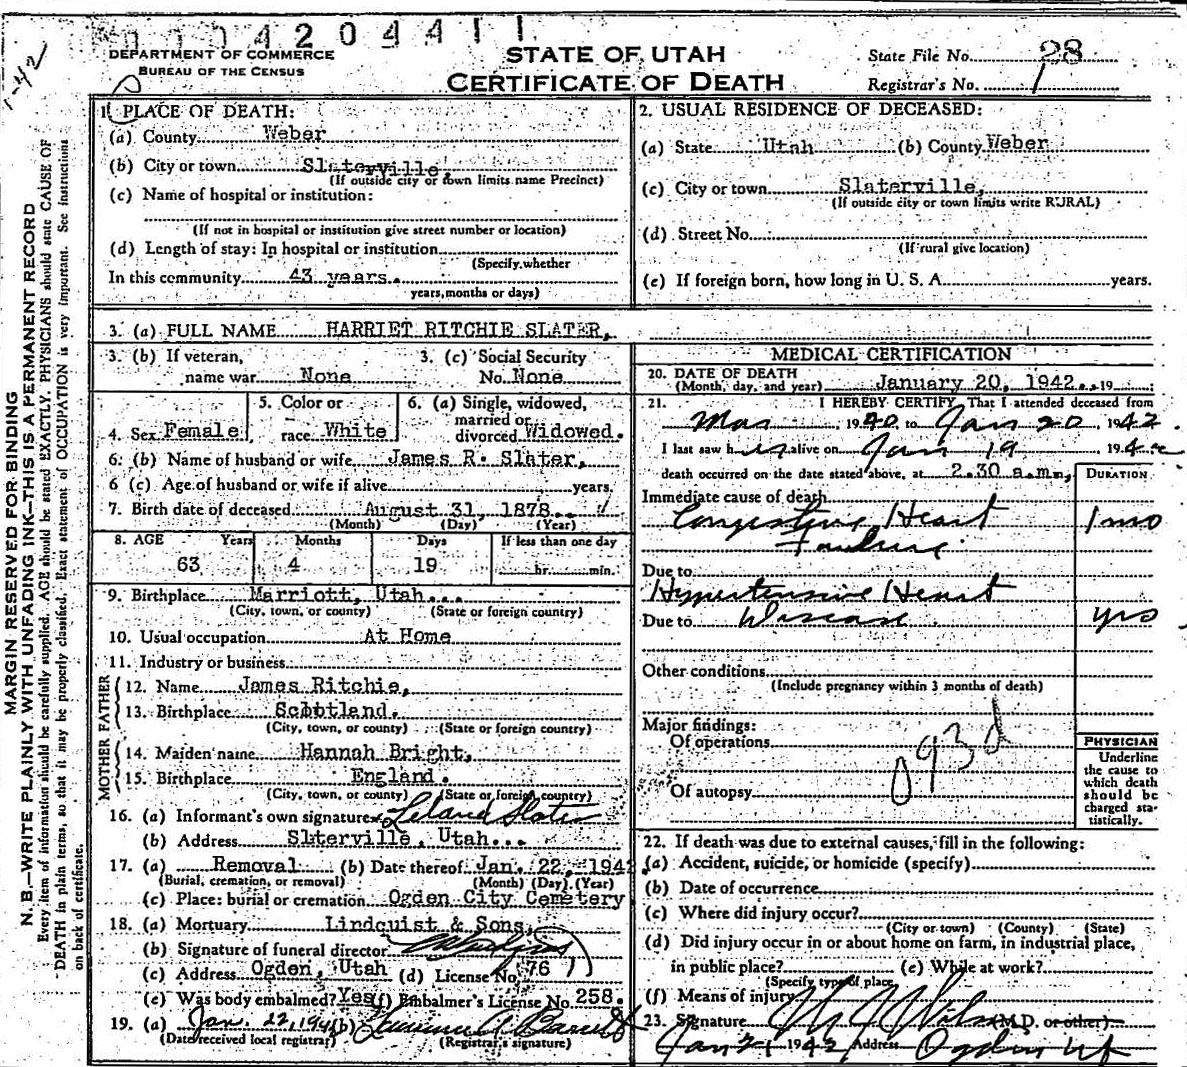 1-42
0004204411
DEPARTMENT OF COMMERCE
BUREAU OF THE CENSUS
STATE OF UTAH
CERTIFICATE OF DEATH
State File No. 28
Registrar's No. 1
MARGIN RESERVED FOR BINDING
N. B.—WRITE PLAINLY WITH UNFADING INK—THIS IS A PERMANENT RECORD
Every item of information should be carefully supplied. AGE should be stated EXACTLY. PHYSICIANS should state CAUSE OF
DEATH in plain terms, so that it may be properly classified. Exact statement of OCCUPATION is very important. See instructions
on back of certificate.
1. PLACE OF DEATH:
(a) County Weber
(b) City or town Slaterville,
(If outside city or town limits name Precinct)
(c) Name of hospital or institution:
(If not in hospital or institution give street number or location)
(d) Length of stay: In hospital or institution
(Specify whether
In this community 43 years.
years, months or days)
2. USUAL RESIDENCE OF DECEASED:
(a) State Utah (b) County Weber
(c) City or town Slaterville,
(If outside city or town limits write RURAL)
(d) Street No.
(If rural give location)
(e) If foreign born, how long in U. S. A. years.
3. (a) FULL NAME HARRIET RITCHIE SLATER,
3. (b) If veteran, name war None
3. (c) Social Security No. None
4. Sex Female
5. Color or race White
6. (a) Single, widowed, married or divorced Widowed.
6. (b) Name of husband or wife James R. Slater,
6 (c) Age of husband or wife if alive years
7. Birth date of deceased August 31, 1878.
(Month) (Day) (Year)
8. AGE Years Months Days If less than one day
63 4 19 hr. min.
9. Birthplace Marriott, Utah...
(City, town, or county) (State or foreign country)
10. Usual occupation At Home
11. Industry or business
FATHER
12. Name James Ritchie,
13. Birthplace Scotland.
(City, town, or county) (State or foreign country)
MOTHER
14. Maiden name Hannah Bright,
15. Birthplace England.
(City, town, or county) (State or foreign country)
16. (a) Informant's own signature Leland Slater
(b) Address Slterville, Utah...
17. (a) Removal (b) Date thereof Jan. 22, 1942
(Burial, cremation, or removal) (Month) (Day) (Year)
(c) Place: burial or cremation Ogden City Cemetery
18. (a) Mortuary Lindquist & Sons,
(b) Signature of funeral director
(c) Address Ogden, Utah (d) License No. 76
(e) Was body embalmed? Yes (f) Embalmer's License No. 258.
19. (a) Jan. 22, 194 (b)
(Date received local registrar) (Registrar's signature)
MEDICAL CERTIFICATION
20. DATE OF DEATH
(Month, day, and year) January 20, 1942... 19
21. I HEREBY CERTIFY, That I attended deceased from
Mar 1940 to Jan 20, 1942.
I last saw her alive on Jan 19, 1942
death occurred on the date stated above, at 2.30 a.m.,
DURATION
Immediate cause of death
Congestive Heart 1 mo
Failure
Due to
Hypertensive Heart
Due to Disease yrs
Other conditions
(Include pregnancy within 3 months of death)
Major findings:
Of operations
093d
Of autopsy
PHYSICIAN
Underline
the cause to
which death
should be
charged sta-
tistically.
22. If death was due to external causes, fill in the following:
(a) Accident, suicide, or homicide (specify)
(b) Date of occurrence
(c) Where did injury occur?
(City or town) (County) (State)
(d) Did injury occur in or about home on farm, in industrial place,
in public place? (e) While at work?
(Specify type of place
(f) Means of injury
23. Signature (M.D. or other)
Jan 21 1942 Address Ogden Ut